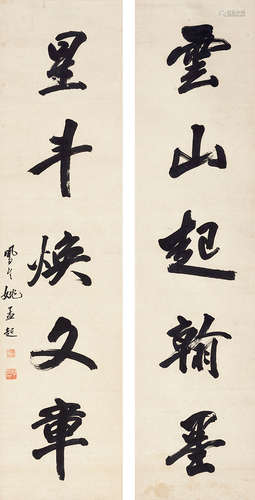 雲山起翰墨
星斗焕文章
鳳生姚孟起